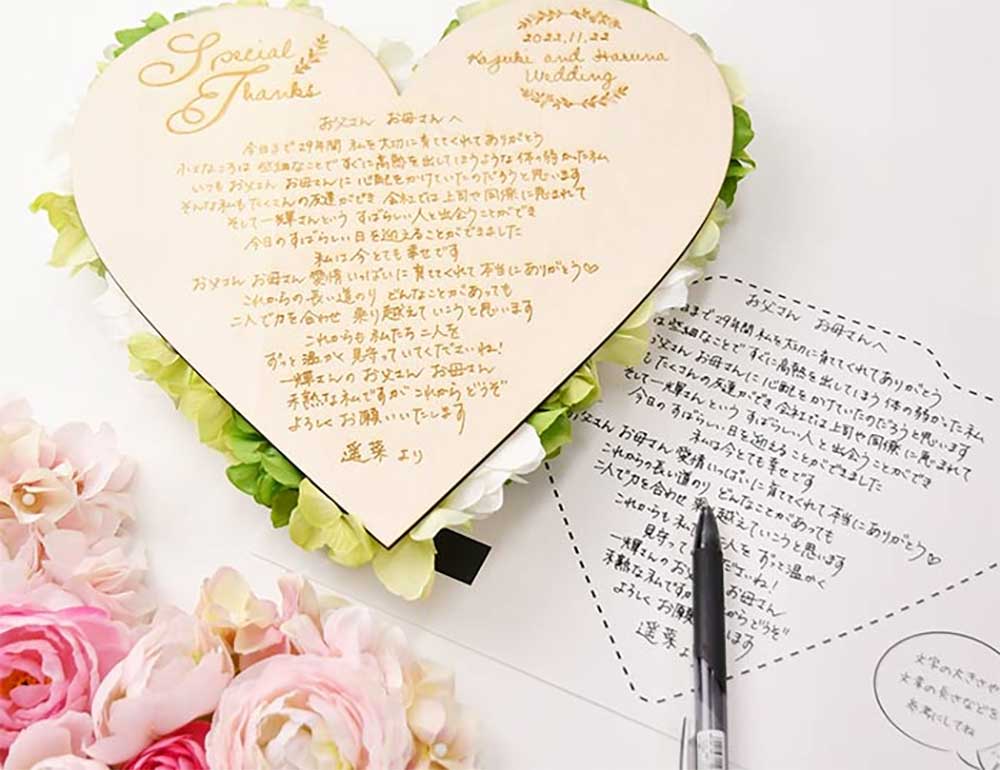 Special
Thanks
2022.11.22
Kazuki and Haruna
Wedding
お父さん お母さんへ
今日まで29年間 私を大切に育ててくれてありがとう
小さなころは 些細なことですぐに高熱を出してしまうような 体の弱かった私
いつも お父さん お母さんに 心配をかけていたのだろうと思います
そんな私も たくさんの友達ができ 会社では上司や同僚に恵まれて
そして一輝さんという すばらしい人と出会うことができ
今日のすばらしい日を迎えることができました
私は今とても幸せです
お父さん お母さん 愛情いっぱいに育ててくれて本当にありがとう♡
これからの長い道のり どんなことがあっても
二人で力を合わせ 乗り越えていこうと思います
これからも私たち二人を
ずっと温かく見守っていてくださいね!
一輝さんのお父さん お母さん
未熟な私ですが これからどうぞ
よろしくお願いいたします
遥菜より
お父さん お母さんへ
まで29年間 私を大切に育ててくれてありがとう
は 些細なことですぐに高熱を出してしまう 体の弱かった私
お父さん お母さんに 心配をかけていたのだろうと思います
も たくさんの友達ができ 会社では上司や同僚に恵まれて
そして一輝さんという すばらしい人と出会うことができ
今日のすばらしい日を迎えることができました
私は今とても幸せです
お父さん お母さん 愛情いっぱいに育ててくれて本当にありがとう♡
これからの長い道のり どんなことがあっても
二人で力を合わせ 乗り越えていこうと思います
これからも私 人を ずっと温かく
見守って ださいね!
一輝さんのお父 お母さん
未熟な私ですが からどうぞ
よろしくお願 します
遥菜よ
文字の大きさや
文章の長さなどを
参考にしてね